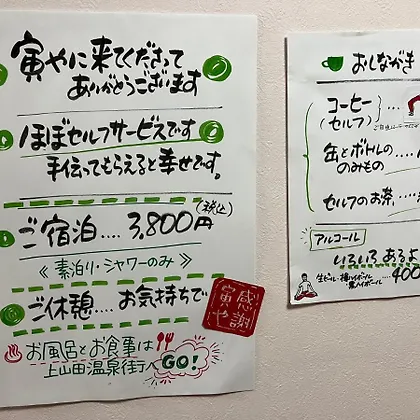 寅やに来てくださって
ありがとうございます
ほぼセルフサービスです
手伝ってもらえると幸せです。
(税込)
ご宿泊.... 3,800円
《素泊り・シャワーのみ》
ご休憩.... お気持ちで
感謝
寅や
お風呂とお食事は
上山田温泉街へGO!
おしながき
コーヒー
(セルフ)
缶とボトルの
のみもの
セルフのお茶
アルコール
いろいろあるよ
生ビール・梅ハイボール
400